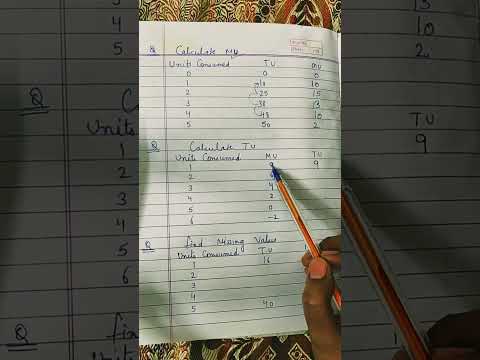 Q Calculate MU
Units Consumed TU MU
0 0 0
1 10 10
2 25 15
3 38 13
4 48 10
5 50 2
Q Calculate TU
Units Consumed MU TU
1 9 9
2
3 4
4 2
5 0
6 -2
Q find Missing Value
Units Consumed TU
1 16
2
3
4
5 40